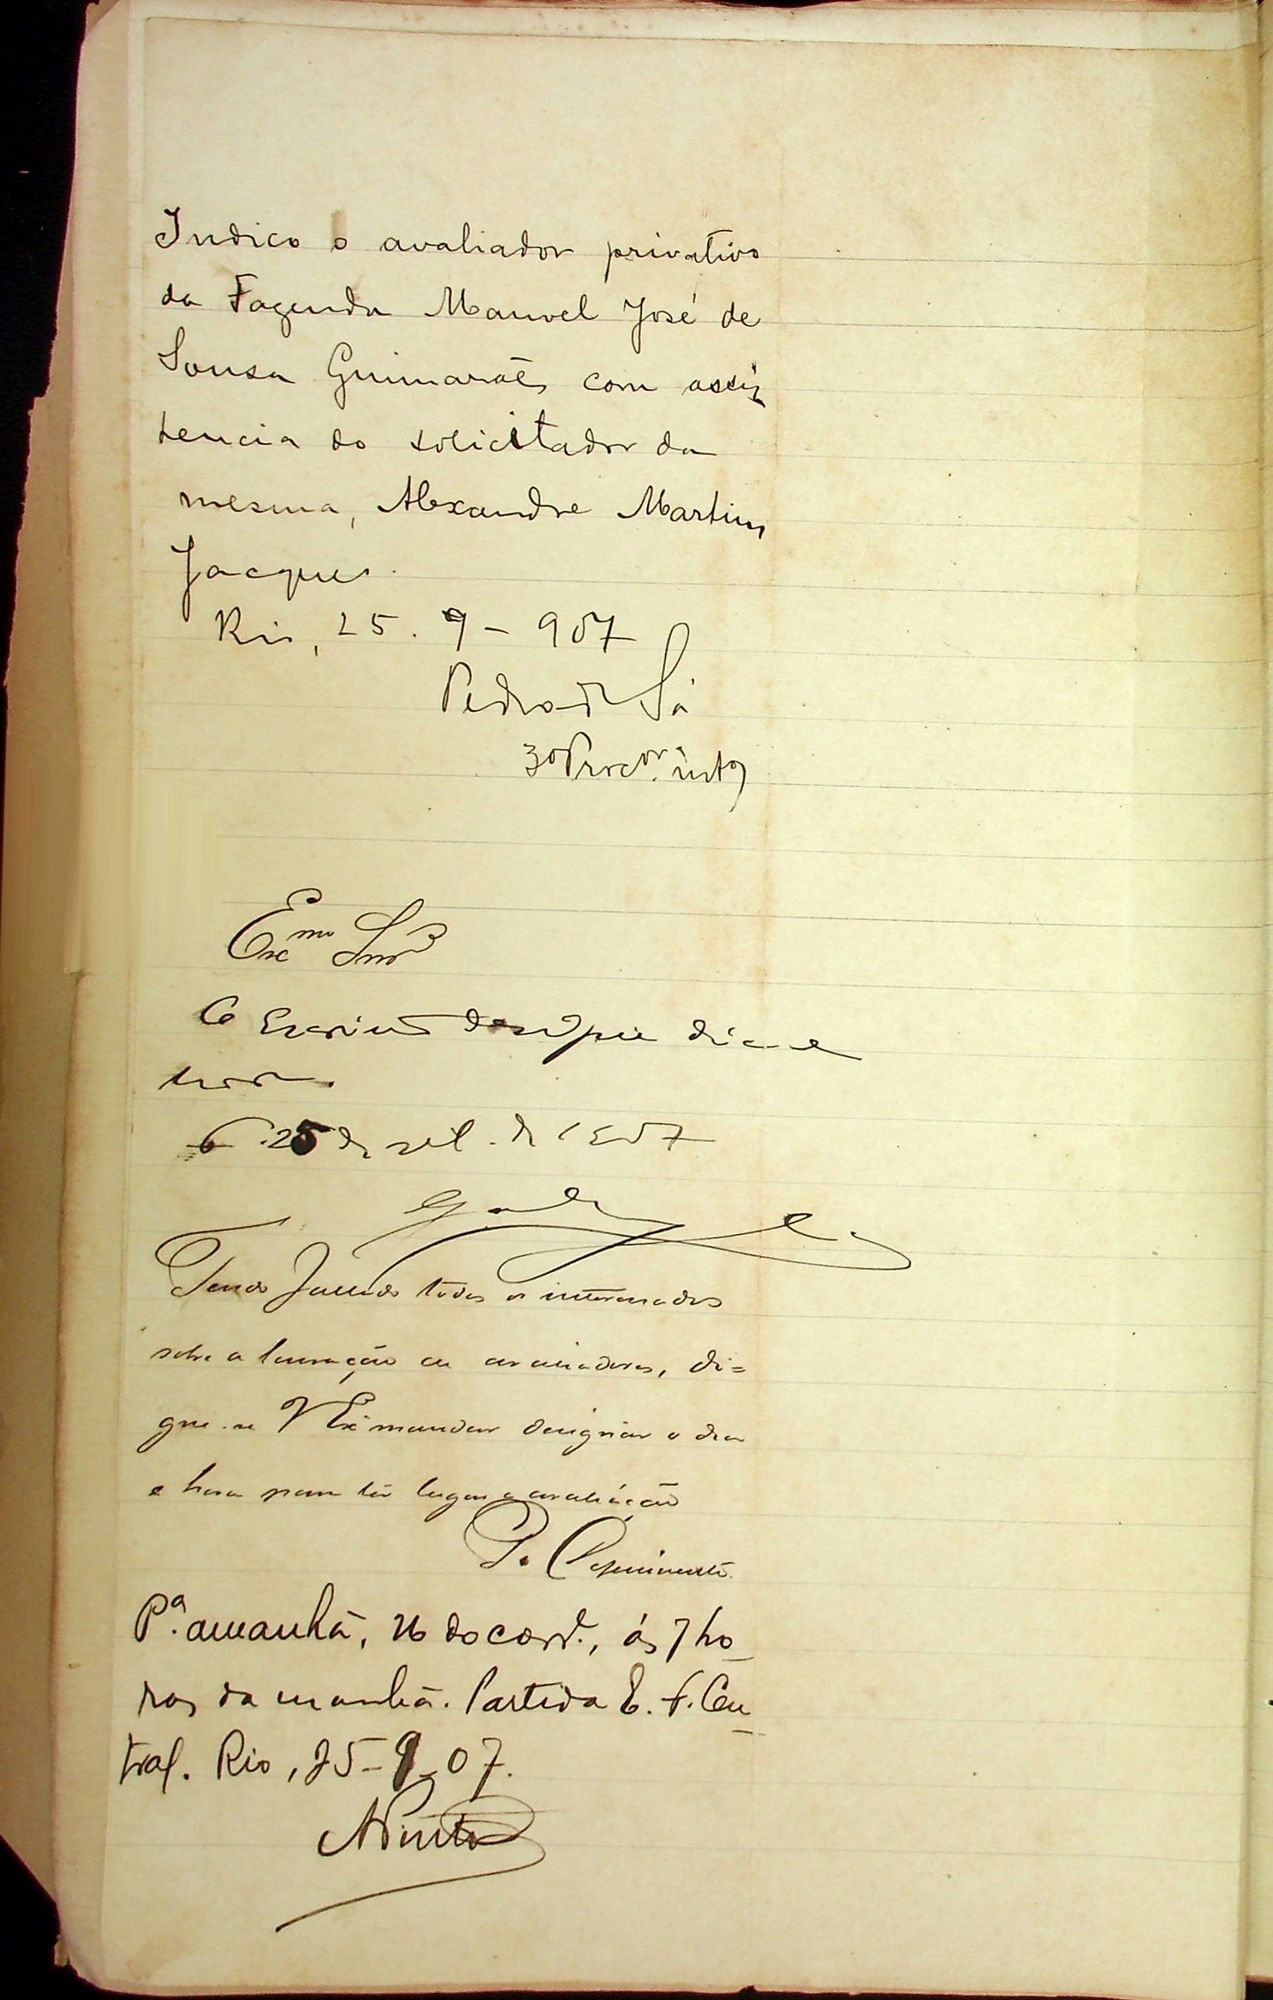 Indico o avaliador privativo
da Fazenda Manoel José de
Sousa Guimarães com assis
tencia do solicitador da
mesma, Alexandre Martins
Jacques.
Rio, 25. 9 - 907
Pedro de Sá
3º Procor. intº
Exmo Snr
O Escrivão designe dia e
hora.
25 de set. de 1907
Tendo fallado todos os interessados
sobre a louvação de avaliadores, di=
gne-se V Exª mandar designar o dia
e hora para ter lugar a avaliação
Pª. amanhã, 26 do corrᵉ., ás 7 ho_
ras da manhã. Partida E. F. Cen_
tral. Rio, 25-9-07.
APinto